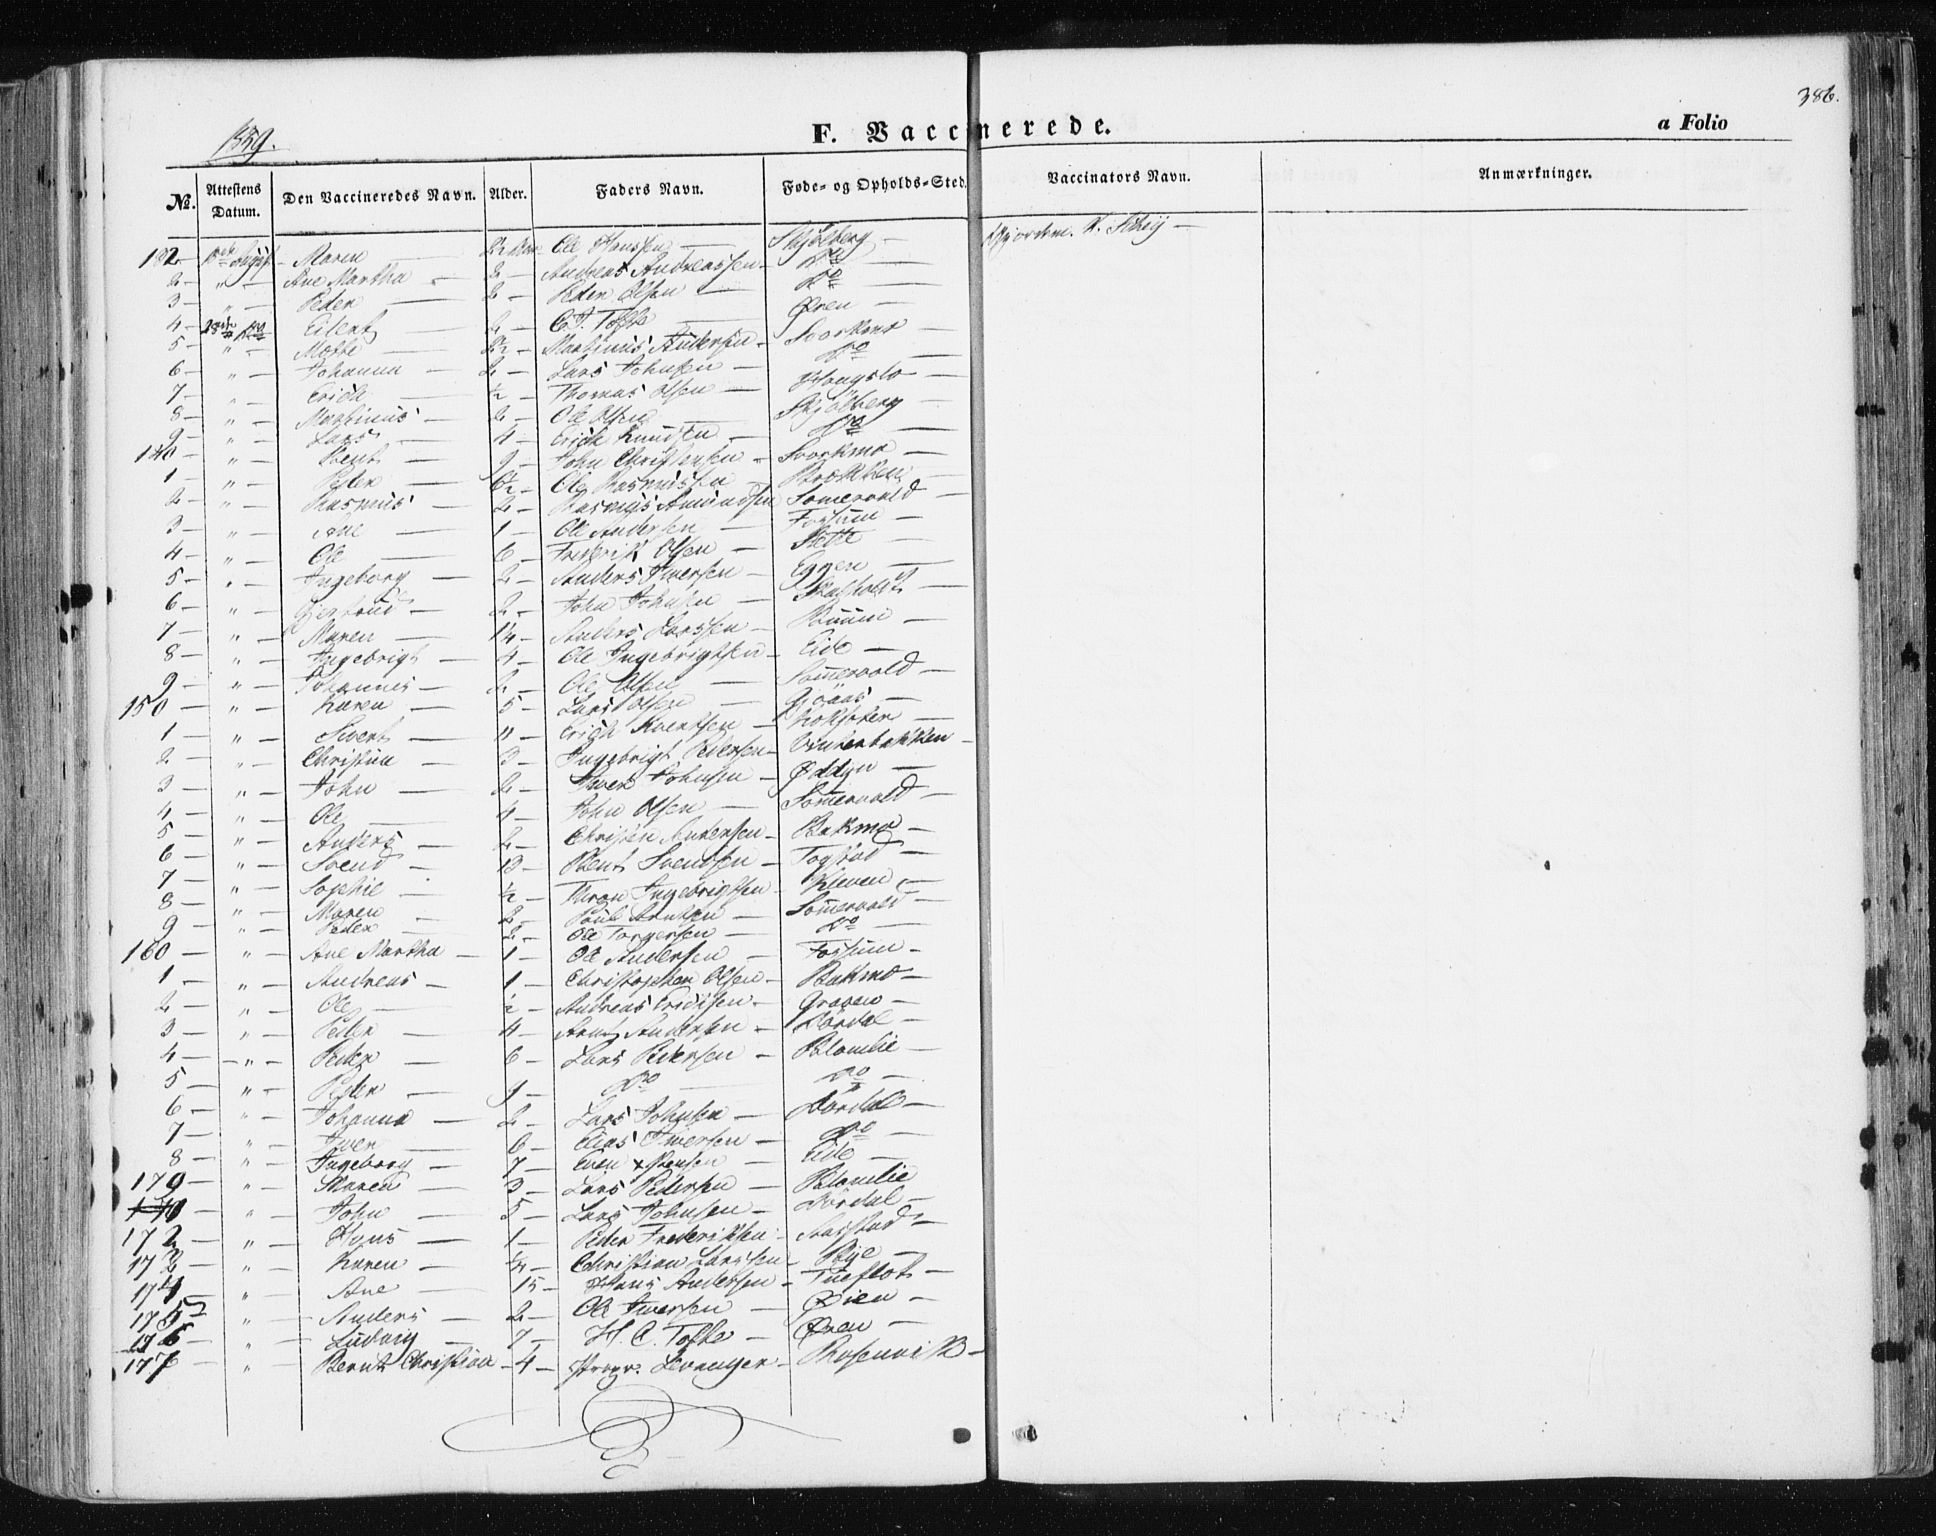 386.
1859.
F. Vaccinerede.
a Folio
No. Attestens Datum. Den Vaccineredes Navn. Alder. Faders Navn. Føde- og Opholds-Sted. Vaccinators Navn. Anmærkninger.
Maren Ole Hanssen Skjølberg
2 " Ane Martha 2 Andreas Andreassen Do
3 " Peder 2 Peder Olsen Do
4 Eilert 2 C. J. Tofte Øren
5 " Mette 2½ Martinus Andersen Svorkmo
6 " Johanna 2 Lars Johnsen Do
7 " Erich ½ Thomas Olsen Hongslo
8 " Martinus 2 Ole Olsen Skjølberg
9 " Lars 4 Erich Knudsen Do
140 " Bent 9 John Christensen Svorkmo
1 " Peder 6½ Ole Rasmussen Bækken
2 " Rasmus 2 Rasmus Amundsen Somervold
3 " Ane 1 Ole Andersen Fossum
4 " Ole 6 Frederik Olsen Slette
5 " Ingeborg 2 Anders Iversen Eggen
6 " Gjertrud 2 John Johnsen
7 " Maren 1¼ Anders Larssen
8 " Ingebrigt 4 Ole Ingebrigtsen Eide
9 " Johannes 2 Ole Olsen Somervold
150 " Karen 5 Lars Olsen Gjøaas
1 " Sivert " Erich
2 " Christine 3 Ingebrigt Pedersen Vinterbakken
3 " John 2 Iver Johnsen
4 " Ole 4 John Olsen Somervold
5 " Anders 2 Christen Andersen Bakmo
6 " Svend 13 Bent Svendsen Togstad
7 " Sophie ½ Thron Ingebrigtsen Kleven
8 " Maren 2 Paul Arntsen Somervold
9 " Peder 2 Ole Torgersen Do
160 " Ane Martha 1 Ole Andersen Fossum
1 " Andreas 1 Christopher Olsen Bakmo
2 " Ole ½ Andreas Erichsen Graven
3 " Peder 4 Arnt Andersen Dørdal
4 " Peder 6 Lars Pedersen Blomlie
5 " Peder 9 Do Do
6 " Johanna 2 Lars Johnsen Dørdal
7 " Iver 6 Elias Iversen Do
8 " Ingeborg 7 Even Eide
179 " Maren 3 Lars Pedersen Blomlie
" John 5 Lars Johnsen Dørdal
172 " Hans 1 Peder Frederiksen
" Karen ¼ Christian Larssen Bye
174 " Ane 15 Hans Andersen
175 " Anders 2 Ole Iversen Øien
176 " Ludvig 7 H. C. Tofte Øren
177 " Bernt Christian 4 Levanger Rosenvik